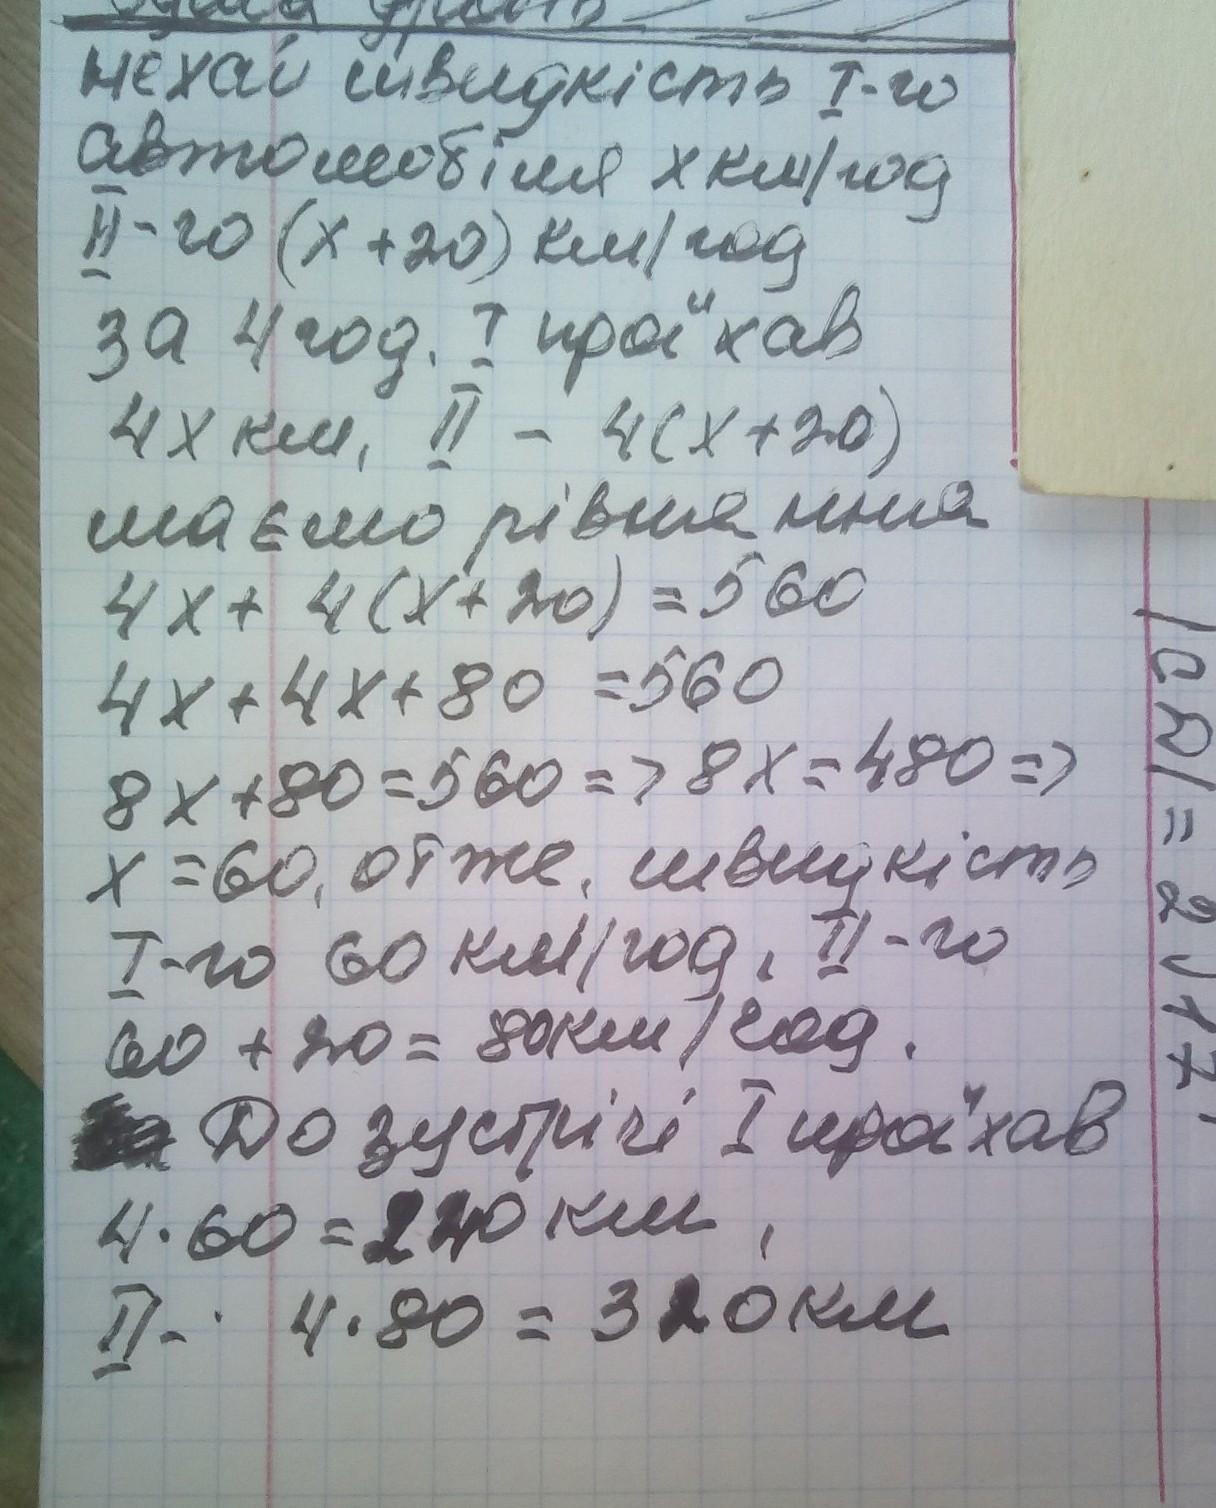 нехай швидкість I-го
автомобіля x км/год
II-го (x+20) км/год
за 4 год. I проїхав
4x км, II - 4(x+20)
маємо рівняння
4x+ 4(x+20) =560
4x+4x+80 =560
8x+80=560=> 8x=480=>
x=60, отже, швидкість
I-го 60 км/год, II-го
60+20= 80км/год.
До зустрічі I проїхав
4·60=240 км,
II- 4·80 = 320 км